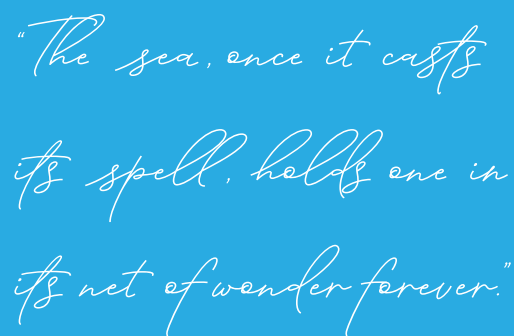 “The sea, once it casts
its spell, holds one in
its net of wonder forever.”